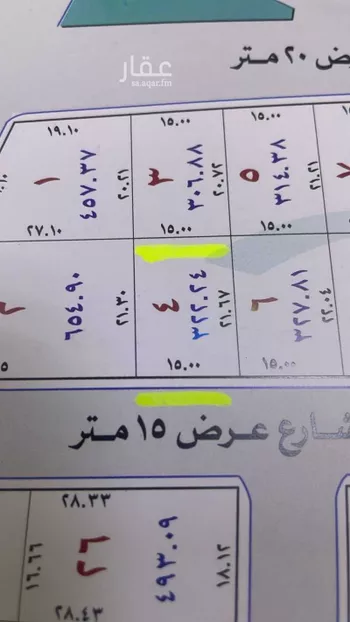 عقار
sa.aqar.fm
ض ٢٠ متر
١٩.١٠
١٥.٠٠
١٥.٠٠
١
٤٥٧.٣٧
٢٠.٢١
٣
٣٠٦.٨٨
٢٠.٧٢
٥
٣١٤.٣٨
٢١.٢١
٢٧.١٠
١٥.٠٠
١٥.٠٠
٦٥٤.٩٠
٢١.٣٠
٤
٣٢٢.٢٤
٢١.٦٧
٦
٣٢٧.٨١
٢٢.٠٤
١٥.٠٠
١٥.٠٠
شارع عرض ١٥ متر
٢٨.٣٣
١٦.٦٦
٤٩٣.٠٩
١٨.١٢
٢٨.٤٣